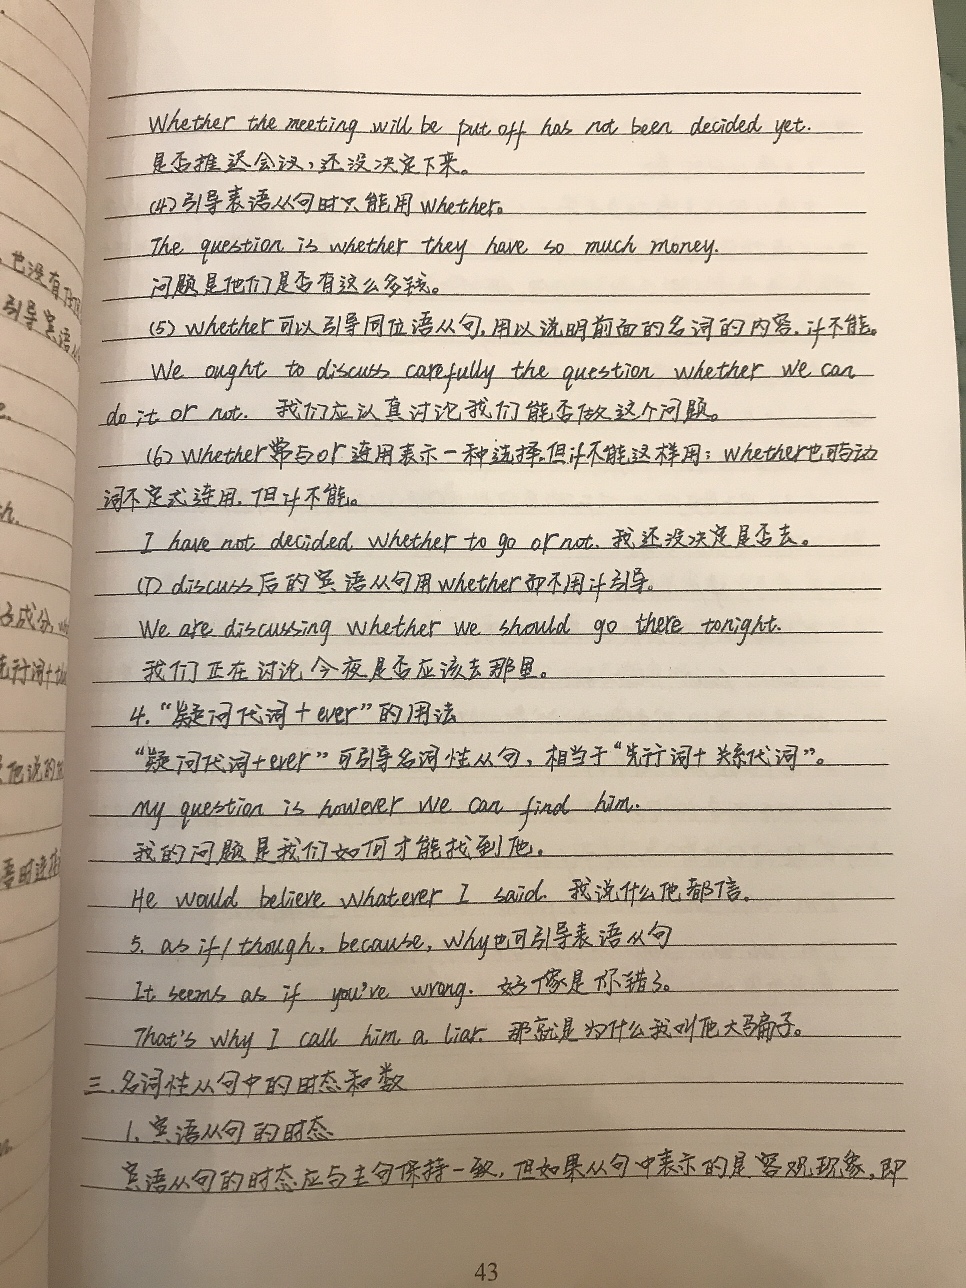 Whether the meeting will be put off has not been decided yet.
是否推迟会议，还没决定下来。
(4)引导表语从句时只能用whether。
The question is whether they have so much money.
问题是他们是否有这么多钱。
(5) whether可以引导同位语从句，用以说明前面的名词的内容，if不能。
We ought to discuss carefully the question whether we can
do it or not. 我们应认真讨论我们能否做这个问题。
(6) whether常与or连用表示一种选择，但if不能这样用；whether也可与动
词不定式连用，但if不能。
I have not decided whether to go or not. 我还没决定是否去。
(7) discuss后的宾语从句用whether而不用if引导。
We are discussing whether we should go there tonight.
我们正在讨论今夜是否应该去那里。
4. “疑问代词+ever”的用法
“疑问代词+ever”可引导名词性从句，相当于“先行词+关系代词”。
My question is however we can find him.
我的问题是我们如何才能找到他。
He would believe whatever I said. 我说什么他都信。
5. as if/though, because, why也可引导表语从句
It seems as if you've wrong. 好像是你错了。
That's why I call him a liar. 那就是为什么我叫他大骗子。
三.名词性从句中的时态和数
1.宾语从句的时态
宾语从句的时态应与主句保持一致，但如果从句中表示的是客观现象，即
43